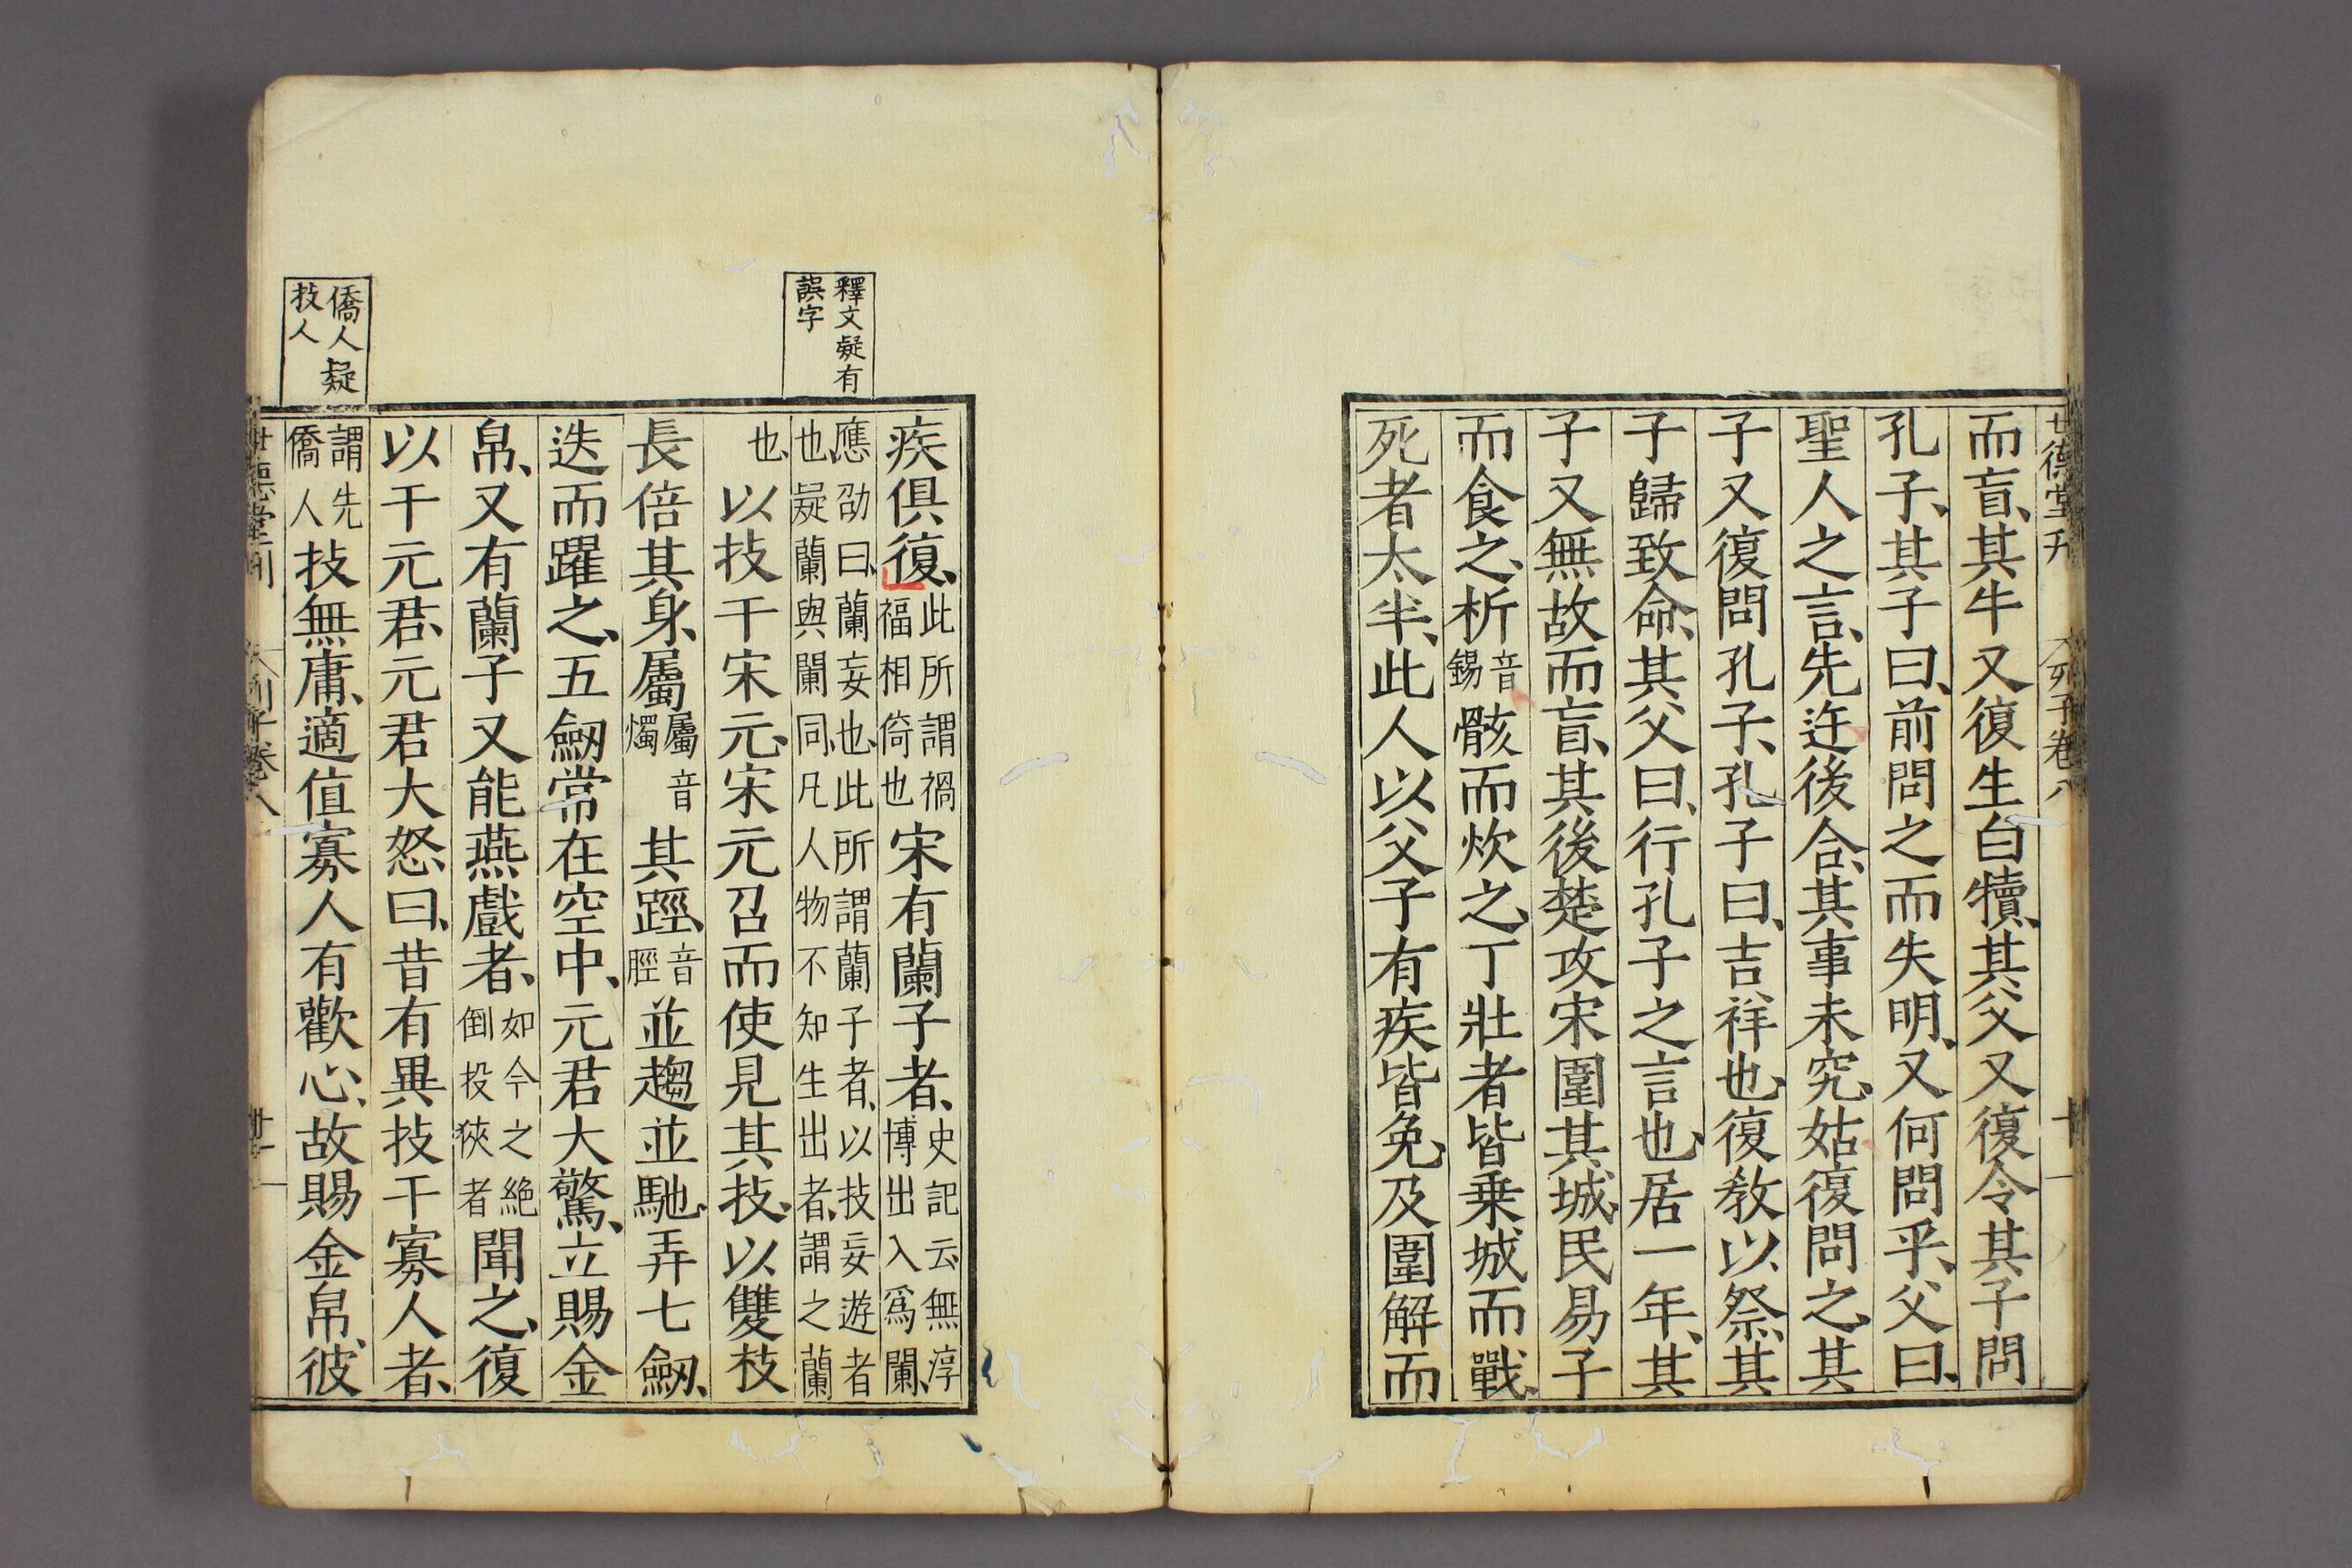 世德堂刊 列子卷八 十一
而盲、其牛又復生白犢、其父又復令其子問
孔子、其子曰、前問之而失明、又何問乎、父曰、
聖人之言、先迕後合、其事未究、姑復問之、其
子又復問孔子、孔子曰、吉祥也、復教以祭、其
子歸致命、其父曰、行孔子之言也、居一年、其
子又無故而盲、其後楚攻宋圍其城、民易子
而食之、析音錫骸而炊之、丁壯者皆乗城而戰、
死者太半、此人以父子有疾皆免、及圍解而
釋文疑有
誤字
疾俱復、此所謂禍福相倚也宋有蘭子者、史記云無淳博出入爲闌、
應劭曰、蘭妄也、此所謂蘭子者、以技妄遊者
也、疑蘭與闌同、凡人物不知生出者、謂之蘭
也、以技干宋元、宋元召而使見其技、以雙枝
長倍其身、屬屬音燭其踁、音脛並趨並馳、弄七劒、
迭而躍之、五劒常在空中、元君大驚、立賜金
帛、又有蘭子又能燕戲者、如今之絶倒投狹者聞之、復
以干元君、元君大怒、曰、昔有異技干寡人者、
僑人疑
技人
謂先僑人技無庸、適值寡人有歡心、故賜金帛、彼
世德堂刊 列子卷八